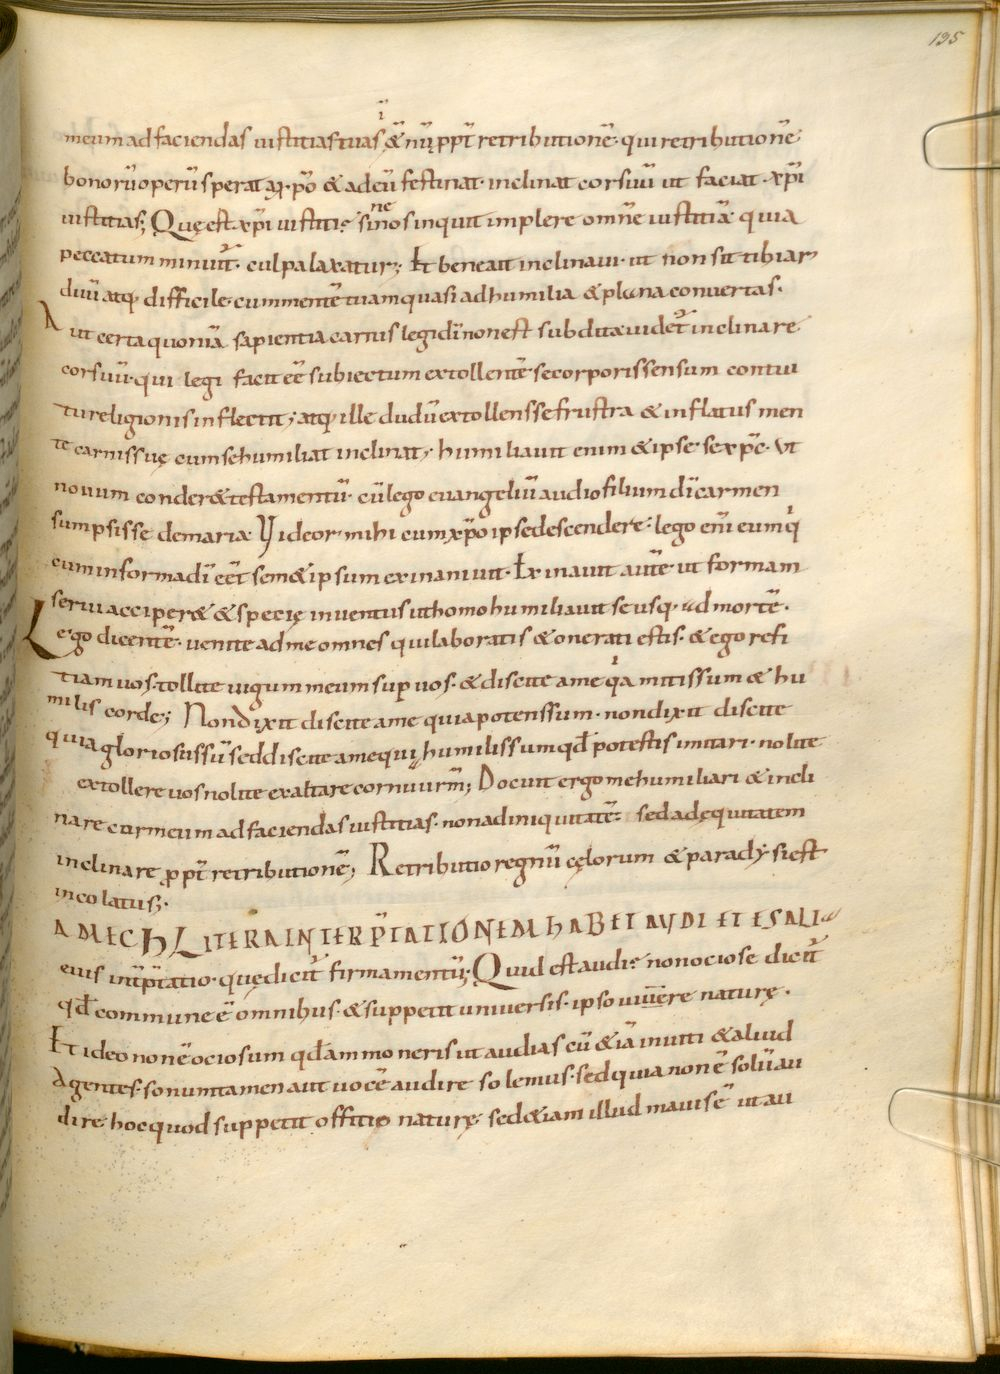 135
meum ad faciendas iustitias tuas & nūq̨ ꝓpt̄ retributionē· qui retributionē
bonorū operū sperat a xp̄o & ad eū festinat· inclinat cor suū ut faciat xp̄i
iustitias; Quę est xp̄i iustitię sine nos inquit implere omnē iustitiā quia
peccatum minuit̄· culpa laxatur; Et bene ait inclinaui· ut non sit tibi ar
duū atq; difficile· cum mentē tuam quasi ad humilia & plana conuertas·
Aut certa quoniā sapientia carnis legi dī non est subdita· uidet̄ inclinare
cor suū· qui legi facit eē subiectum extollentē se corporis sensum contui
tu religionis inflectit; atq; ille dudū extollens se frustra & inflatus men
te carnis suę cum se humiliat inclinat; humiliauit enim & ipse se xp̄c· Vt
nouum conder& testamentū· cū lego euangeliū audio filium dī carnem
sumpsisse de maria Videor mihi cum xp̄o ipse descendere· lego eni̅ eum qi
cum in forma dī eēt sem&ipsum exinaniuit· Exinaiit autē ut formam
serui acciper& & specię inuentus ut homo humiliauit se usq; ad mortē·
Lego dicentē· uenite ad me omnes qui laboratis & onerati estis· & ego refi
tiam uos· tollite iugum meum sup uos· & discite a me qa mitis sum & hu
milis corde; Non dixit discite a me quia potens sum· non dixit discite
quia gloriosus sū sed discite a me quia humilis sum qd̄ potestis imitari· nolite
extollere uos nolite exaltare cornu ur̄m; Docuit ergo me humiliari & incli
nare cor meum ad faciendas iustitias· non ad iniquitatē· sed ad ęquitatem
inclinare ꝓpt̄ retributionē; Retributio regnū cęlorum & paradysi est
incolatus;·
AMECH LITERA INTERP̄TATIONEM HABET AUDI ET ES ALI
eius int̄p̄tatio· quę dicit̄ firmamentū; Quid est audi? non ociose dicit̄
qd̄ commune ē omnibus· & suppetit uniuersis· ipso uiuere naturę·
Et ideo non ē ociosum qd̄ ammoneris ut audias cū &iā inuiti & aliud
Agentes· sonum tamen aut uocē audire solemus· sed quia non ē solū au
dire hoc quod suppetit offitio naturę sed &iam illud maius ē ut au